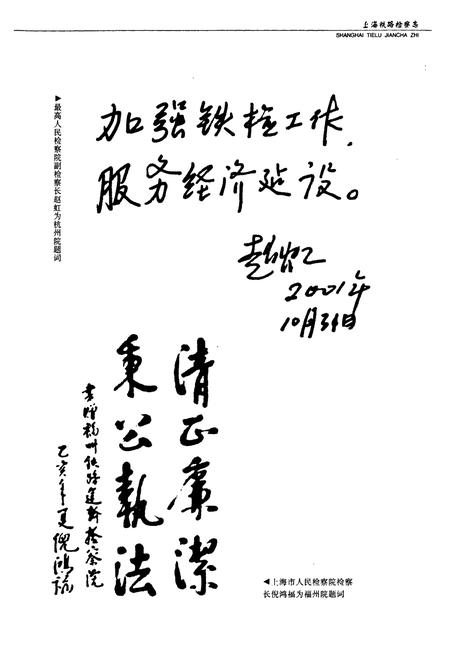 上海铁路检察志
SHANGHAI TIELU JIANCHA ZHI
▶最高人民检察院副检察长赵虹为杭州院题词
加强铁检工作,
服务经济建设。
赵虹
2001年
10月31日
清正廉潔
秉公執法
書贈福州铁路運輸检察院
乙亥年夏 倪鸿福
◀上海市人民检察院检察
长倪鸿福为福州院题词